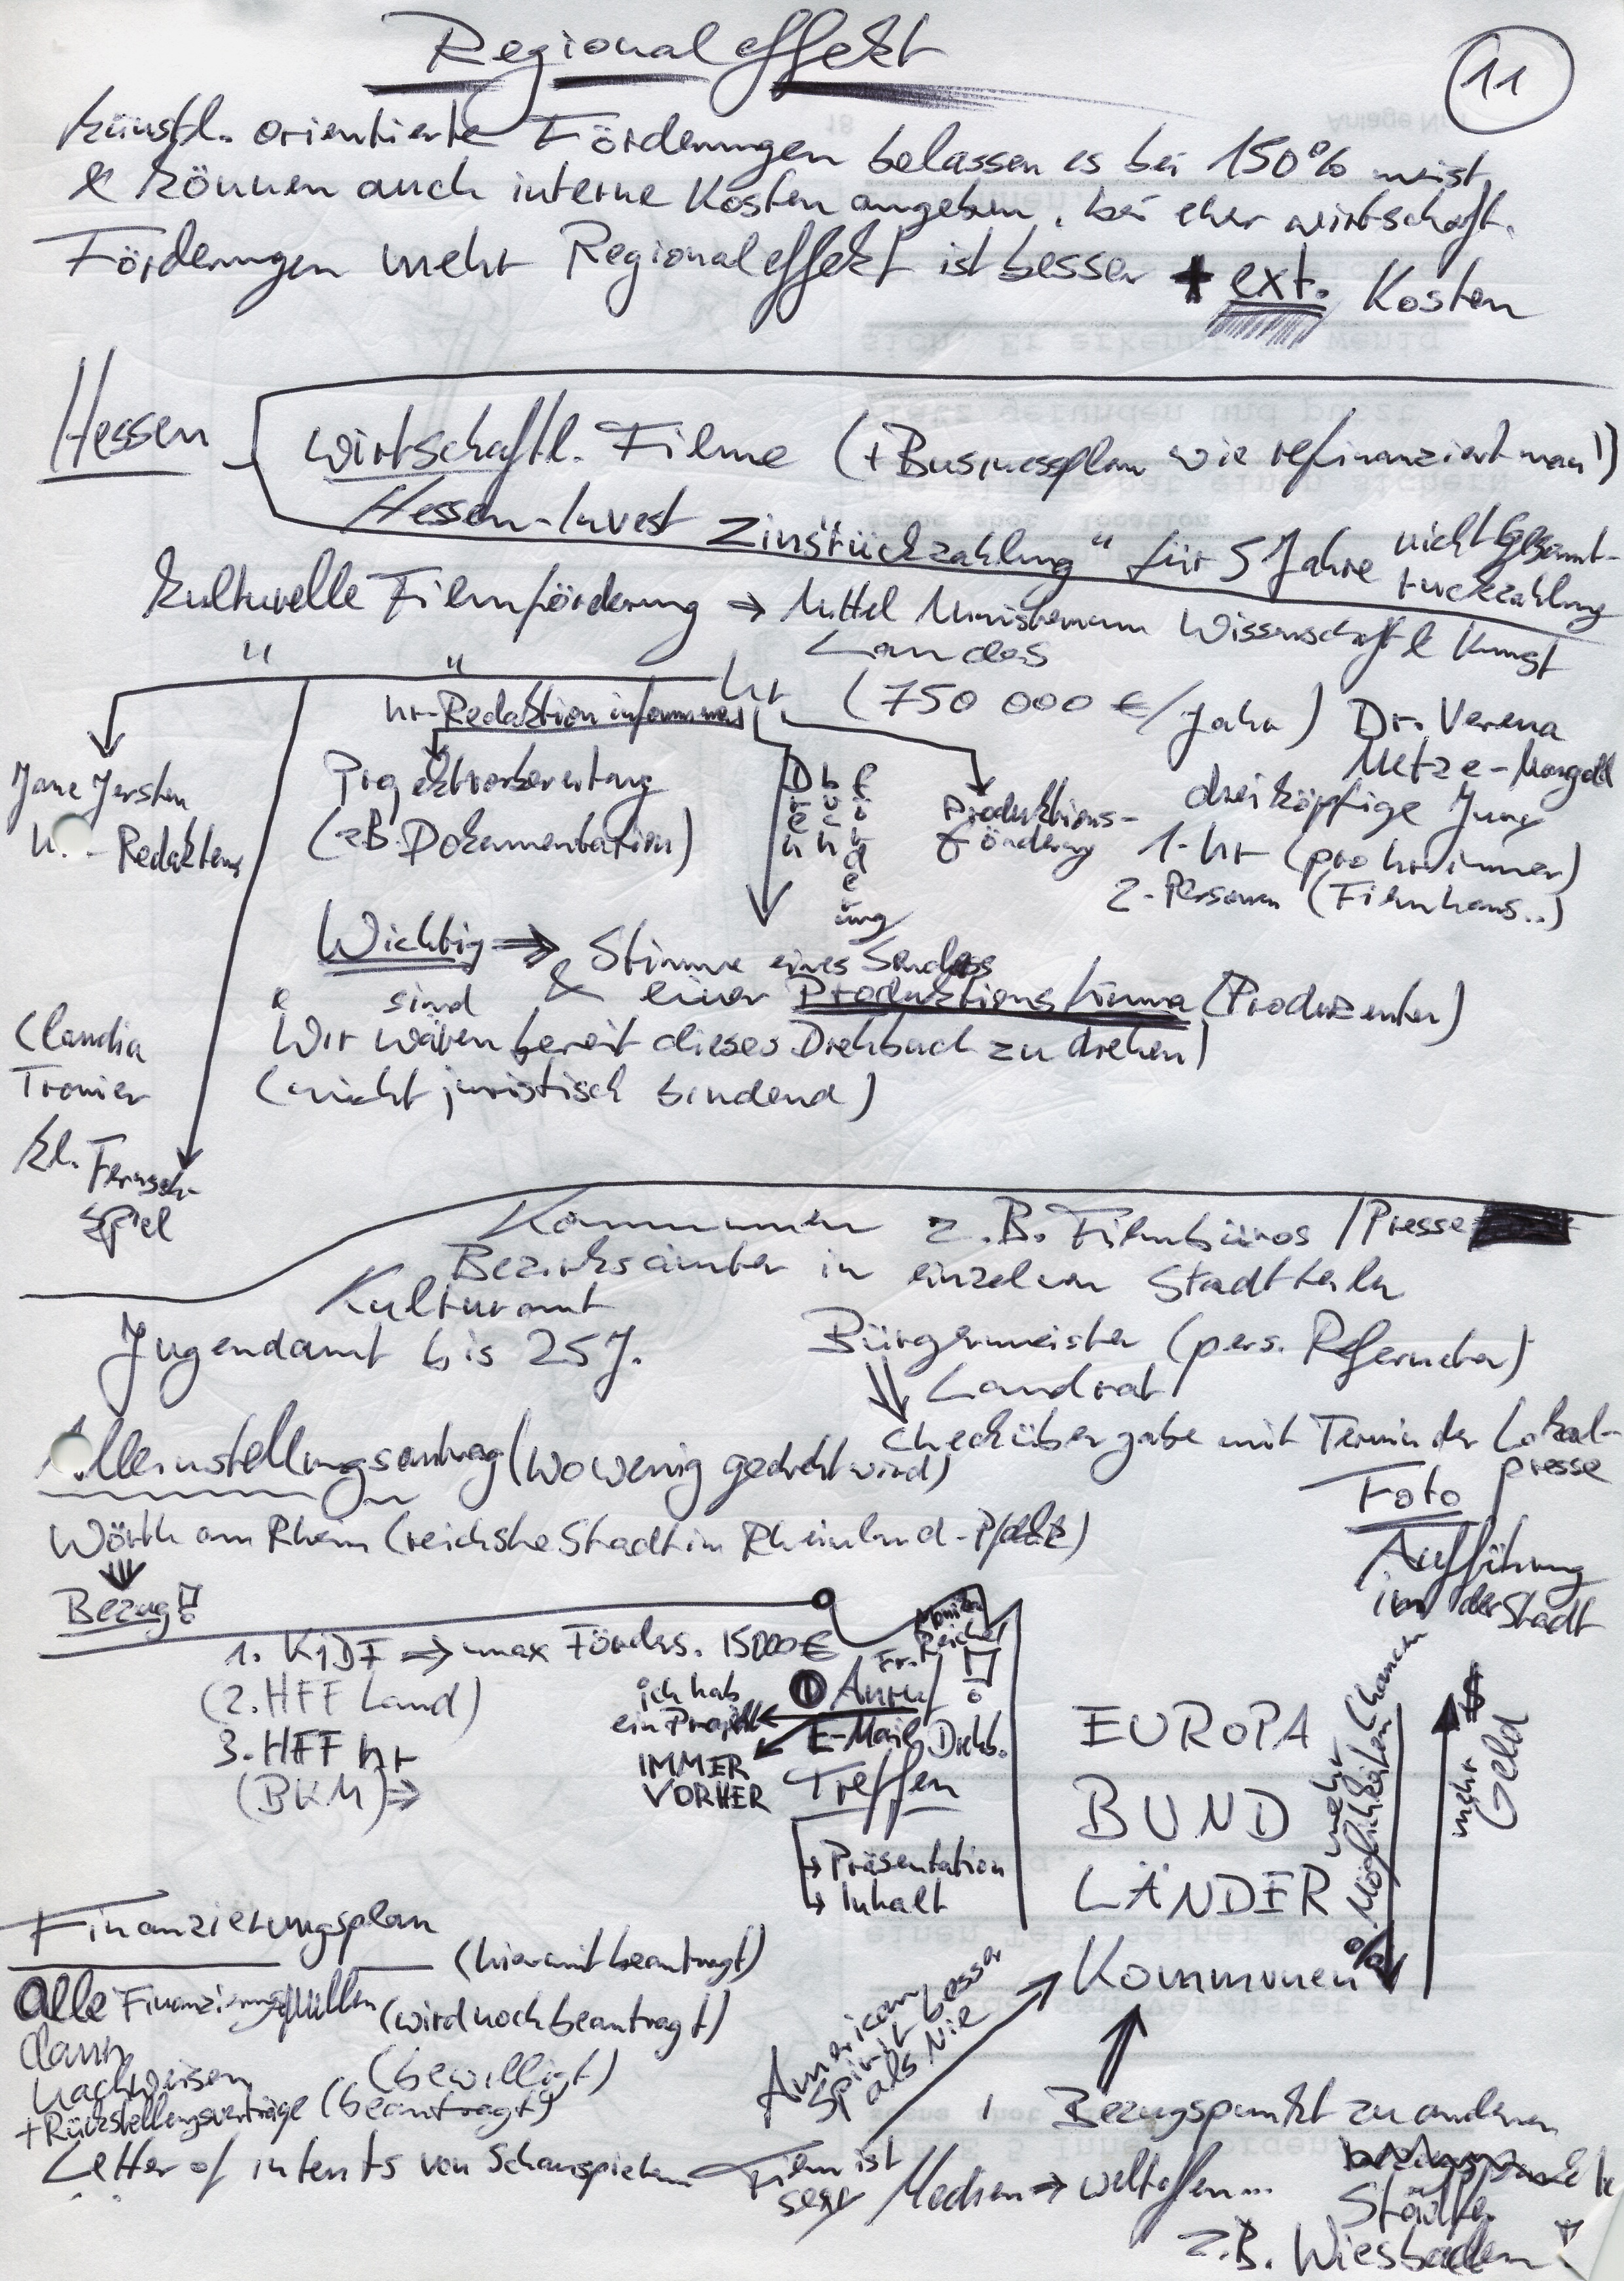 Regionaleffekt
11
künstl. orientierte Förderungen belassen es bei 150% meist
& können auch interne Kosten angeben. bei eher wirtschaft.
Förderungen mehr Regionaleffekt ist besser + ext. Kosten
Hessen
wirtschaftl. Filme (+Businessplan wie refinanziert man!)
Hessen-Invest Zinsrückzahlung" für 5 Jahre nicht Gesamt-
rückzahlung
kulturelle Filmförderung → Mittel Ministerium Wissenschaft & Kunst
Landes
" " hr (750 000 €/Jahr) Dr. Verena
Metze-Mangold
hr-Redaktion
Projektvorbereitung
(z.B. Dokumentation)
Drehbuchförderung
Produktions-
förderung
dreiköpfige Jury
1-hr (pro hr immer)
2-Personen (Filmhaus..)
Redakteur
Wichtig ⇒ Stimme eines Senders
sind & einer Produktionsfirma (Produzenten)
"Wir wären bereit dieses Drehbuch zu drehen!
(nicht juristisch bindend)
Claudia
Tronier
kl. Fernseh-
spiel
Kommunen z.B. Filmbüros / Presse
Bezirksämter in einzelnen Stadtteilen
Kulturamt
Jugendamt bis 25J.
Bürgermeister (pers. Referenten)
Landrat
Checkübergabe mit Termin der Lokal-
presse
Foto
Aufführung
in der Stadt
Alleinstellungsantrag (wo wenig gedreht wird)
Wörth am Rhein (reichste Stadt in Rheinland-Pfalz)
Bezug!
1. K1DF ⇒ max Förders. 15000€
(2. HFF Land)
3. HFF hr
(BKM) ⇒
Fr. Monika Reichel
ich hab
ein Projekt
IMMER
VORHER
1 Anruf!
E-Mail Drehb.
Treffen
Präsentation
Inhalt
EUROPA
BUND
LÄNDER
Kommunen
mehr Möglichkeiten Chancen
%
mehr Geld
$
Finanzierungsplan
(hiermit beantragt)
Alle Finanzierungsquellen (wird noch beantragt)
dann
nachweisen (bewilligt)
+Rückstellungsverträge (beantragt)
Letter of intents von Schauspielern
American
Spirit besser
als Nie
Film ist
sexy
Medien → weltoffen...
! Bezugspunkt zu anderen
Städte
z.B. Wiesbaden